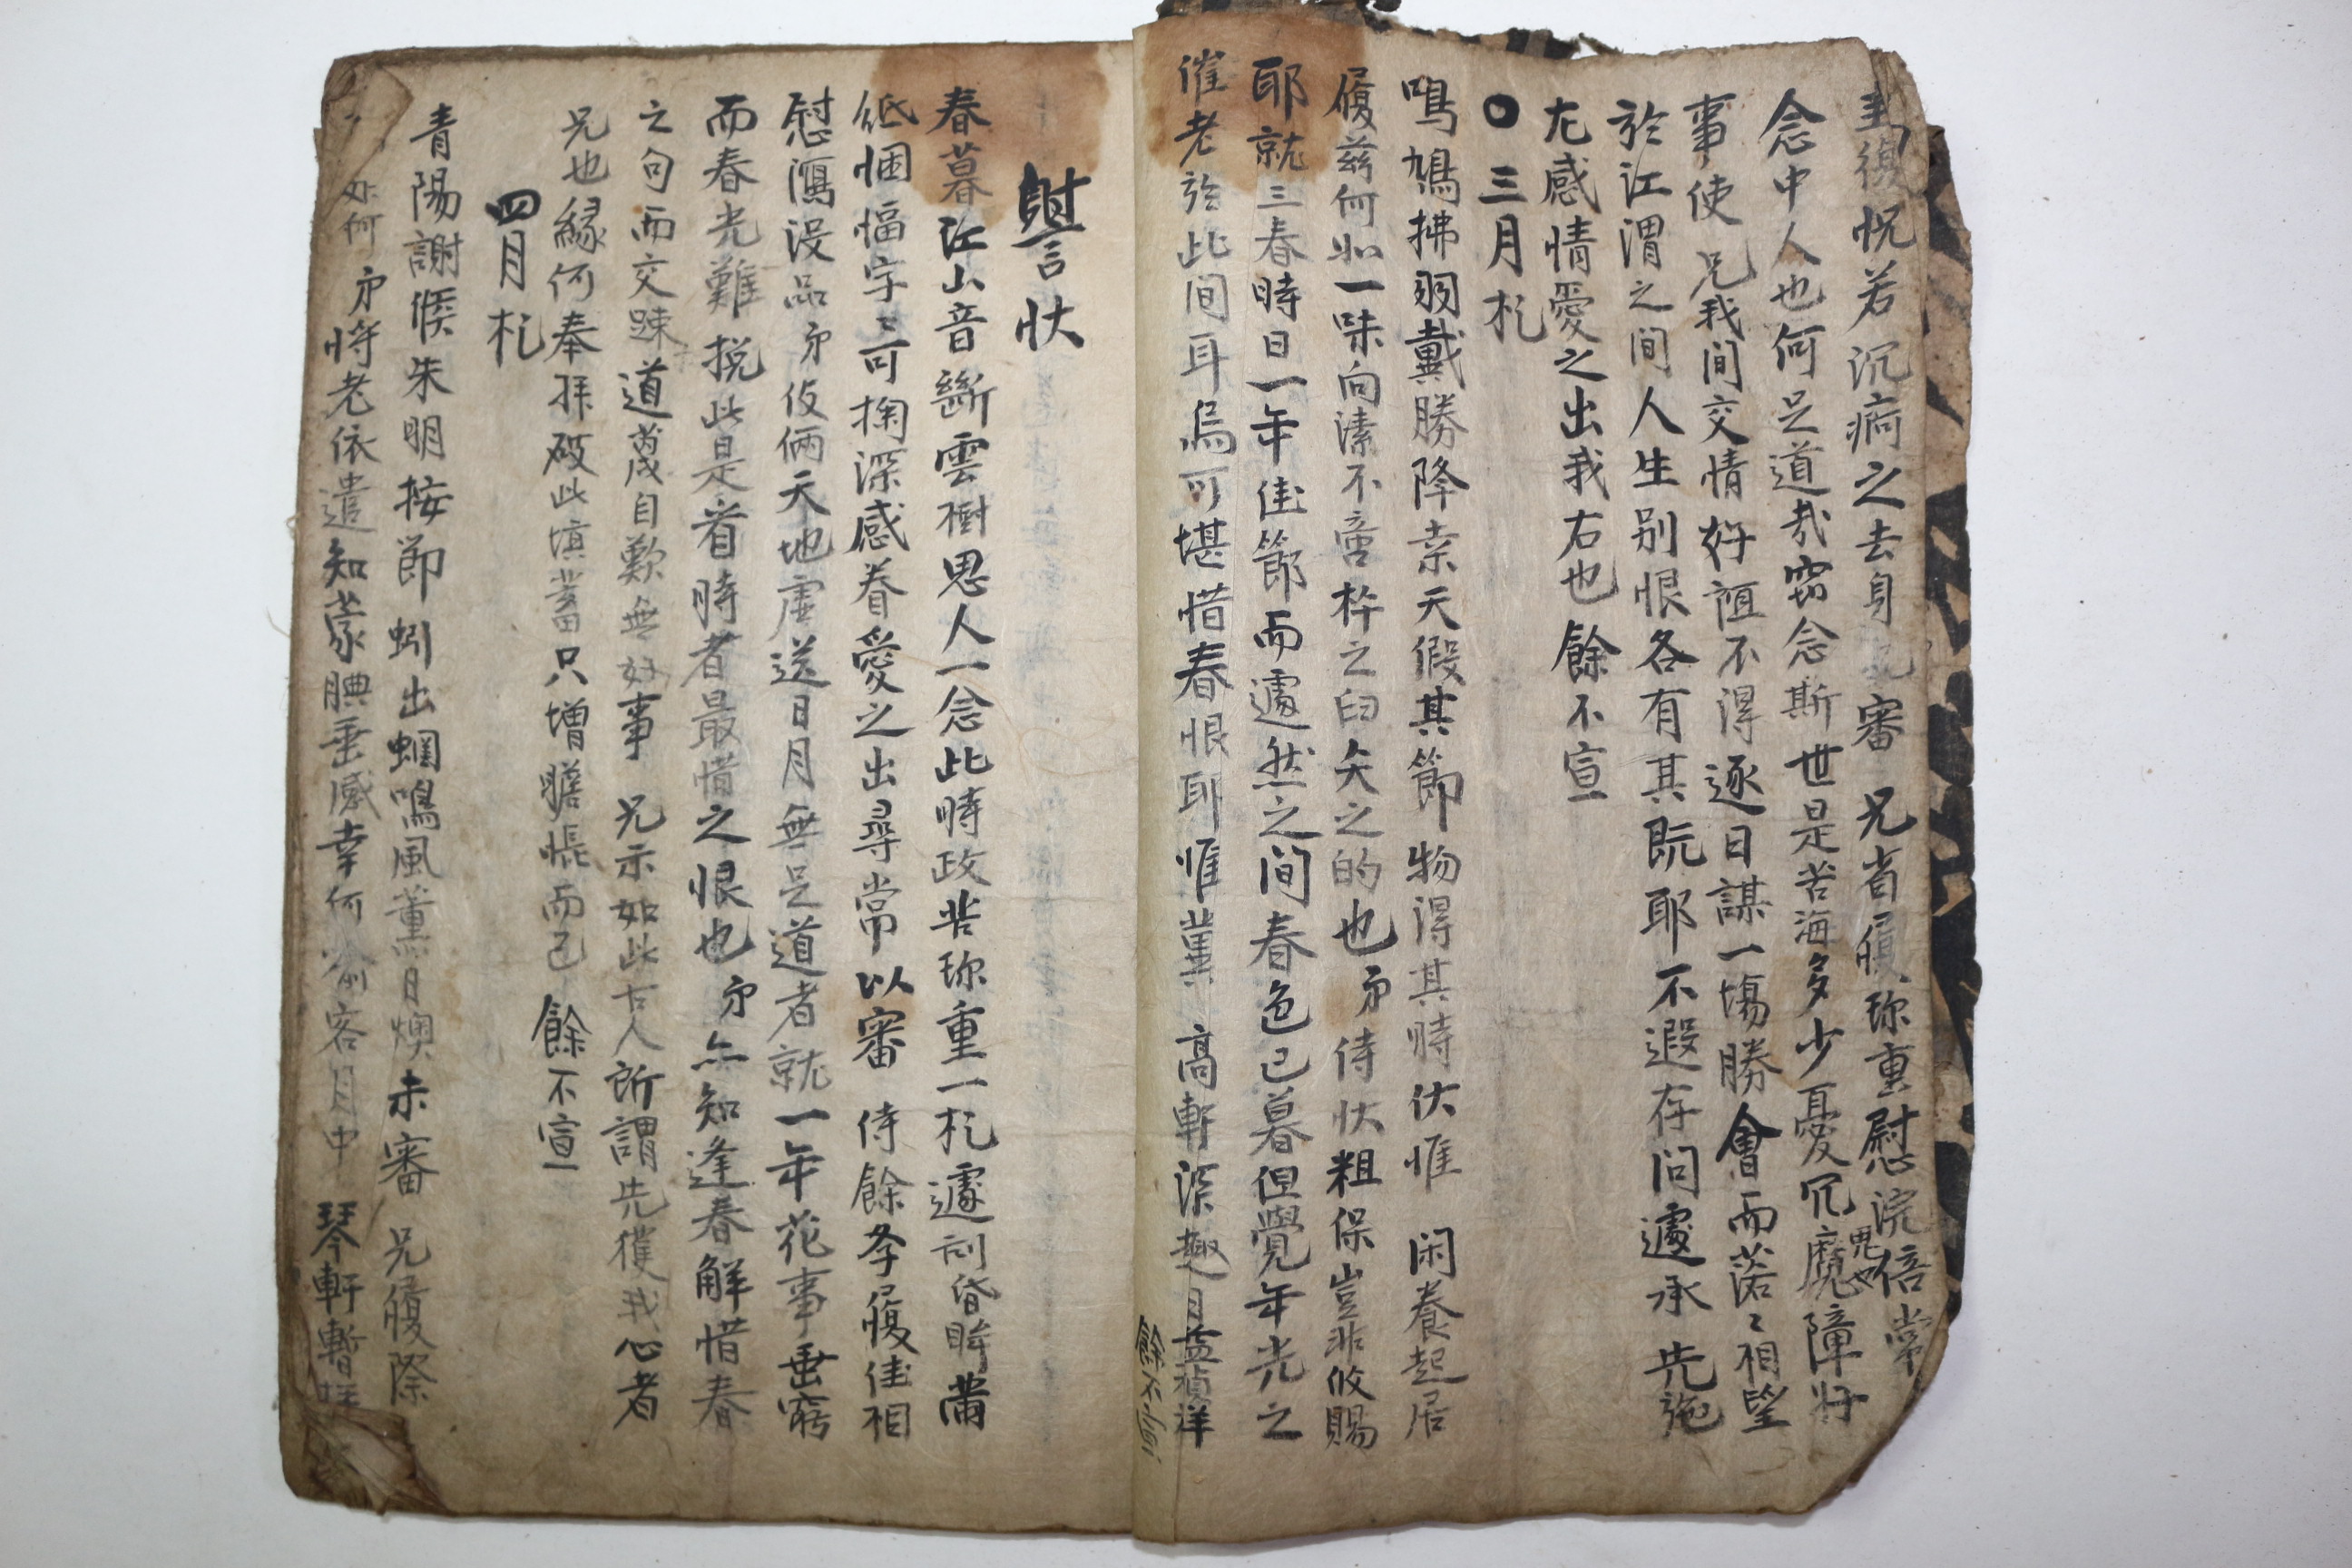 復怳若沉痾之去身 審 兄省履珎重慰浣倍常
念中人也何足道㦲窃念斯世是苦海多少憂冗魔障好
鬼也
事使 兄我間交情好誼不得逐日謀一場勝會而落〻相望
於江渭之間人生别恨各有其既耶不遐存问遽承 先施
尤感情愛之出我右也 餘不宣
〇三月札
鳴鳩拂羽戴勝降桒天假其節物得其時伏惟 闲養起居
履玆何如一味向溸不啻杵之臼矢之的也 㐧侍狀粗保豈非攸賜
耶就三春時日一年佳節而遽然之间春色已暮但覺年光之
催老於此间耳烏可堪惜春恨耶惟冀 高軒深趣月益禎祥
餘不備
謝狀
春暮江山音斷雲樹思人一念此時政苦珎重一札遽刮昏眸滿
紙悃愊字〻可掬深感眷愛之出尋常以審 侍餘孝履佳相
慰瀉沒品㐧伎倆天地虛送日月無足道者就一年花事垂窮
而春光難挽此是看時者最惜之恨也㐧亦知逢春解惜春
之句而交踈道蔑自歎無好事 兄示如此古人所謂先獲我心者
兄也緣何奉拜破此塡蓄只增瞻悵而已 餘不宣
四月札
青陽謝候朱明按節蚓出蟈鳴風薰日燠未審 兄履際
如何㐧將老依遣知蒙腆垂感幸何喻客月中 琴軒暫